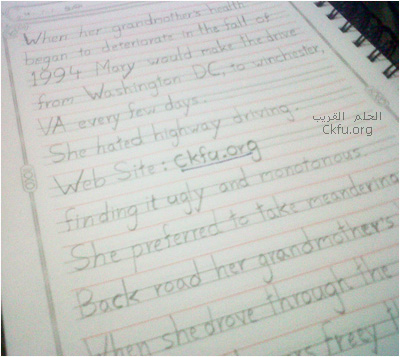 When her grandmother's health
began to deteriorate in the fall of
1994 Mary would make the drive
from Washington DC, to winchester,
VA every few days.
She hated highway driving.
Web Site: ckfu.org
finding it ugly and monotonous.
She preferred to take meandering
Back road her grandmother's
When she drove through the
freey t
الحلم الغريب
Ckfu.org